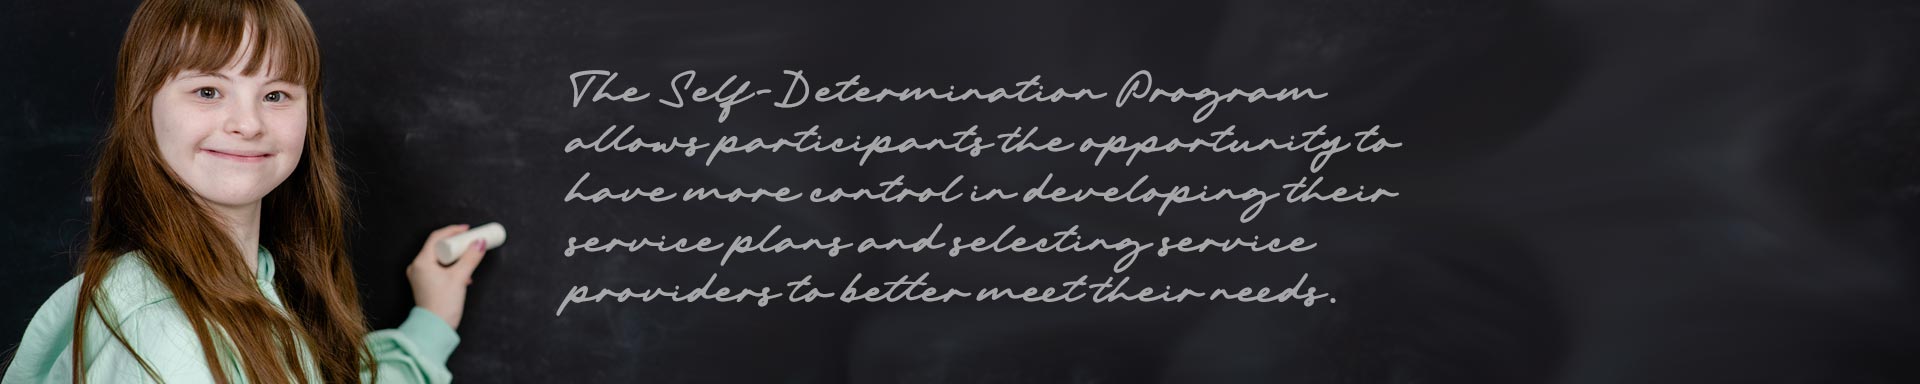 The Self-Determination Program
allows participants the opportunity to
have more control in developing their
service plans and selecting service
providers to better meet their needs.